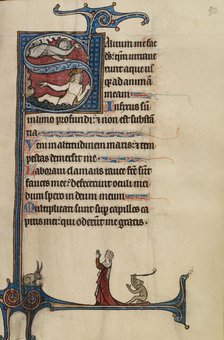 92
Alvum me fac
deus: qm intrave
runt aque usq
q ad animã
meam.
Infixus sũ
in limo profundi: ⁊ non est substan
tia
Veni in altitudinem maris: ⁊ tem
pestas demersit me.
Laboravi clamans rauce facte sũt
fauces mee: defecerunt oculi mei
dum spero in deum meum.
Multiplicati sunt sup capillos ca
pitis mei: qui oderũt me gratis.